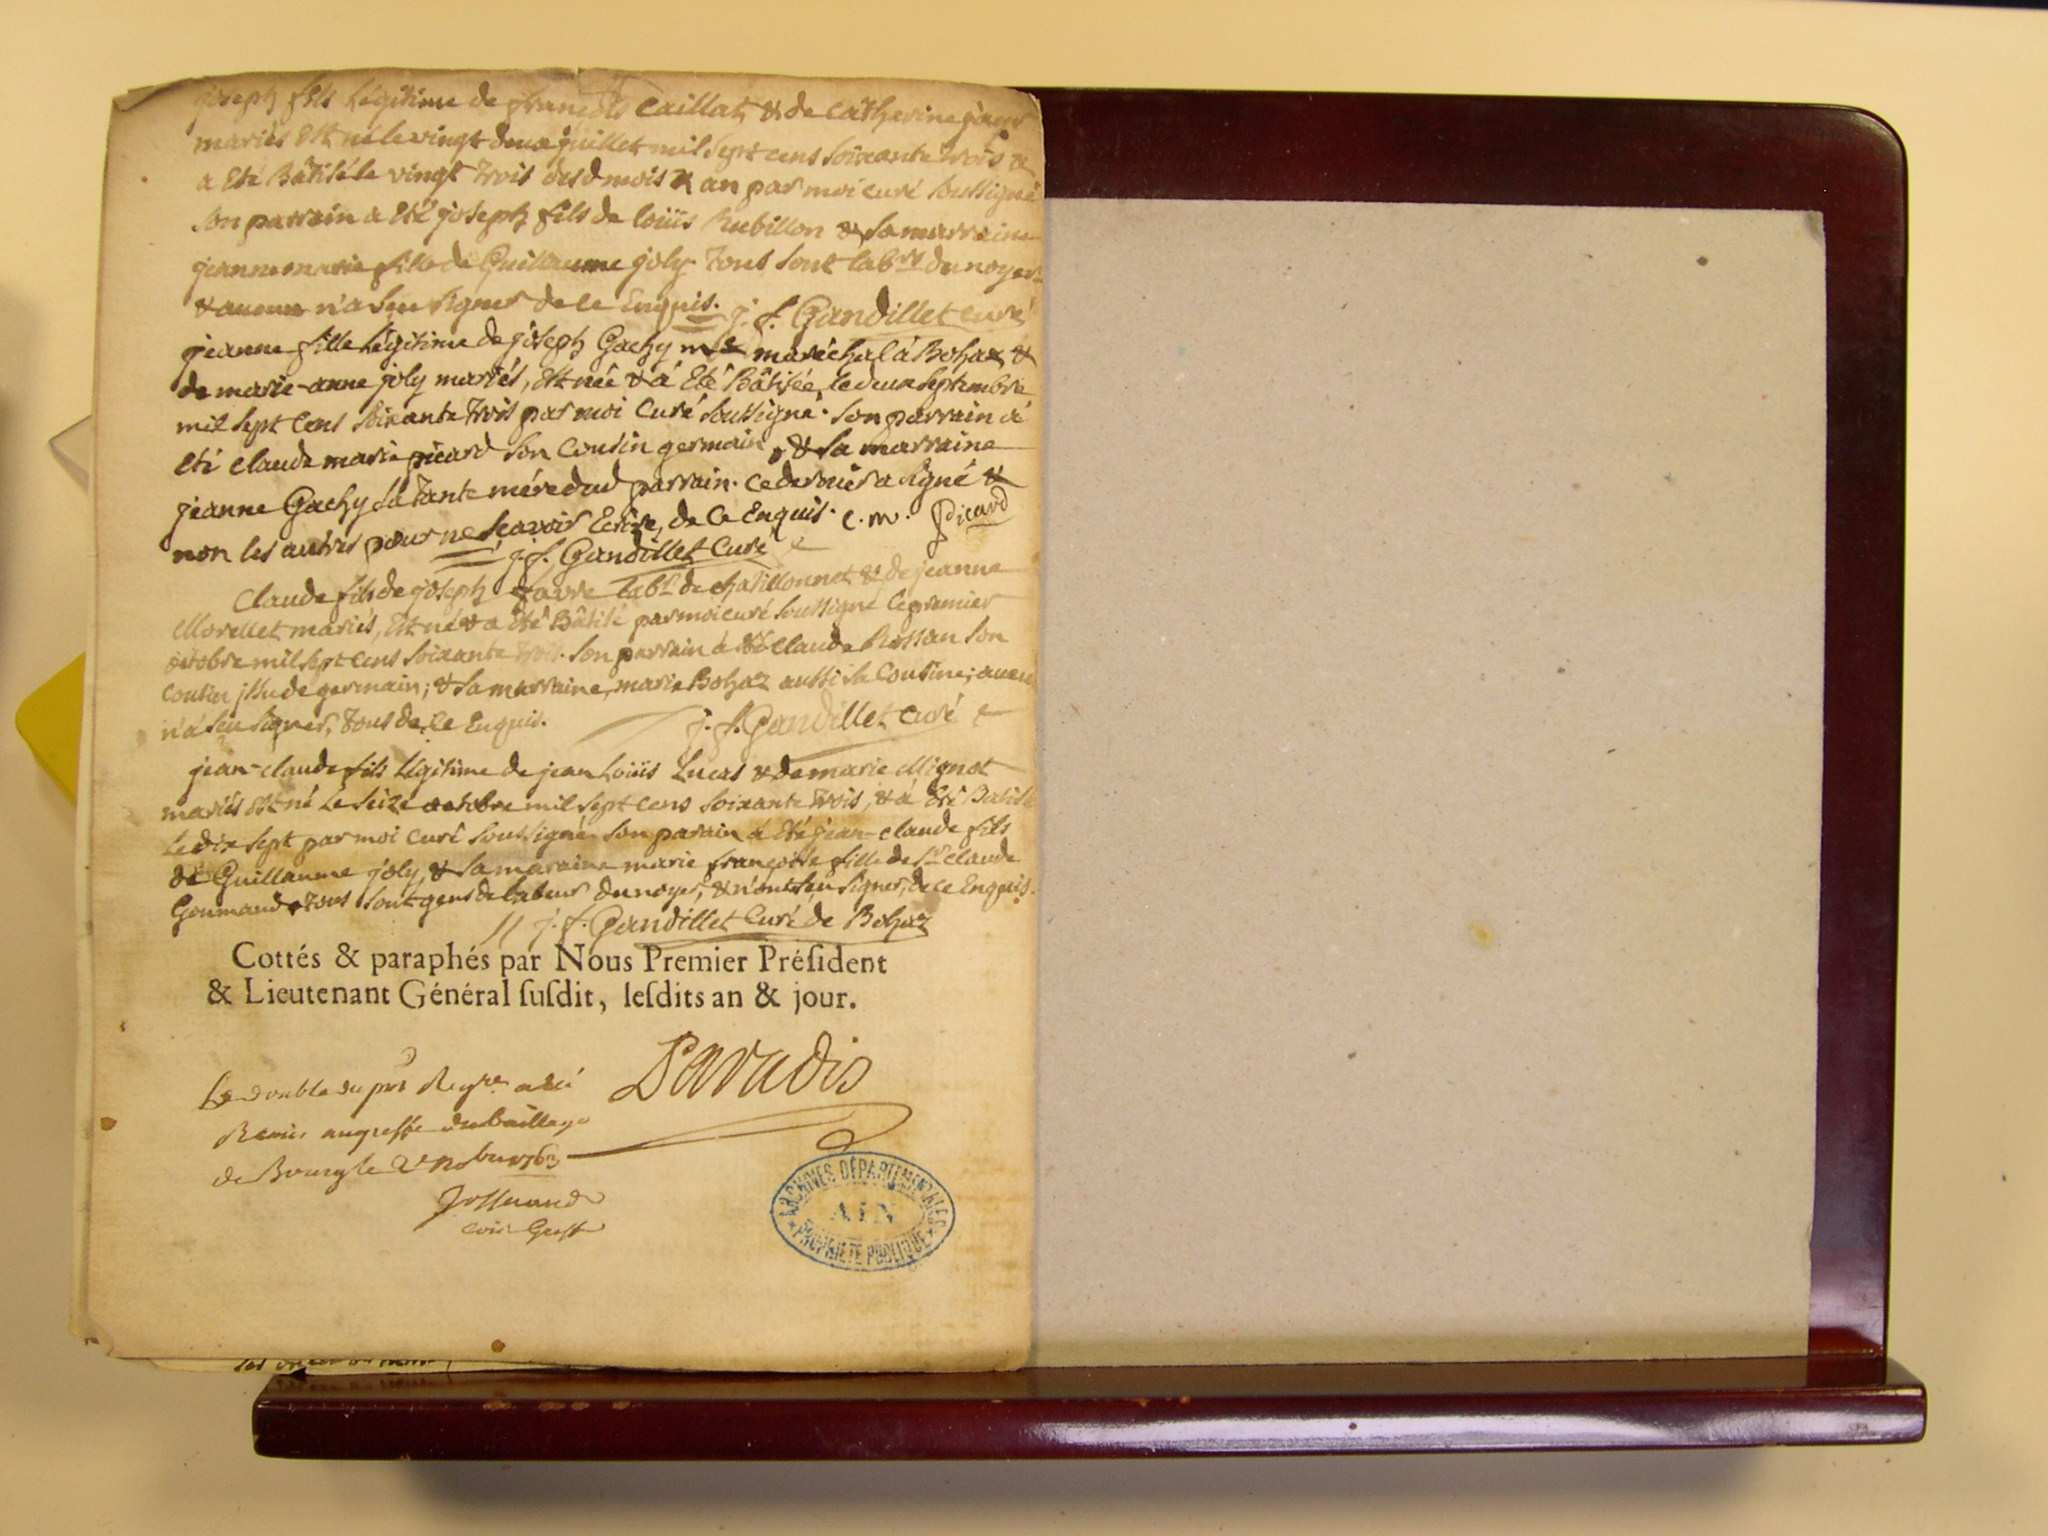 joseph fils légitime de françois Caillat & de Catherine
mariés est né le vingt deux juillet mil sept cens soixante trois &
a été Bâtisé le vingt trois desd mois & an par moi curé soussigné
son parrain a été joseph fils de loüis Rubillon & sa marraine
jeanne marie fille de Guillaume joly. Tous sont labrs du noyer
& aucun n'a sçeu signer de ce Enquis. j. f. Gandillet curé
jeanne fille légitime de joseph Gachy me maréchal á Bohaz &
de marie-anne joly mariés, est née & á été Bâtisée, le deux septembre
mil sept cens soixante trois par moi curé soussigné. son parrain á
été claude marie picard son cousin germain, & sa marraine
jeanne Gachy sa tante mére dud parrain. ce dernier a signé &
non les autres pour ne sçavoir Ecrire, de ce Enquis. c. m. Picard
j. f. Gandillet Curé
Claude fils de joseph favre labr de chatillonnet & de jeanne
Morellet mariés, est né & a été Bâtisé par moi curé soussigné le premier
octobre mil sept cens soixante trois. son parrain á été claude Rossan son
cousin issu de germain; & sa marraine, marie Bohaz aussi sa cousine; aucun
n'á sçeu signer, tous de ce Enquis. j. f. Gandillet curé
jean-claude fils légitime de jean Loüis Lucas & de marie Mignot
mariés est né le seize octobre mil sept cens soixante trois, & á été Batisé
le dix sept par moi curé soussigné son parain á été jean-claude fils
de Guillaume joly, & sa maraine marie françoise fille de Sr claude
Goumand. tous sont gens de labeur du noyer, & n'ont sçeu signer, de ce Enquis.
j. f. Gandillet Curé de Bohaz
Cottés & paraphés par Nous Premier Préſident
& Lieutenant Général ſuſdit, leſdits an & jour.
Paradis
Le double du pnt Regre a été
Remis au greffe du bailliage
de Bourg le 2e 9bre 1763
ARCHIVES DÉPARTEMENTALES
AIN
PROPRIÉTÉ PUBLIQUE